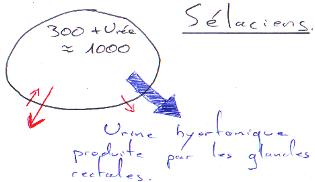 Sélaciens.
300 + Urée
≈ 1000
Urine hyortonique
produite par les glandes
rectales.